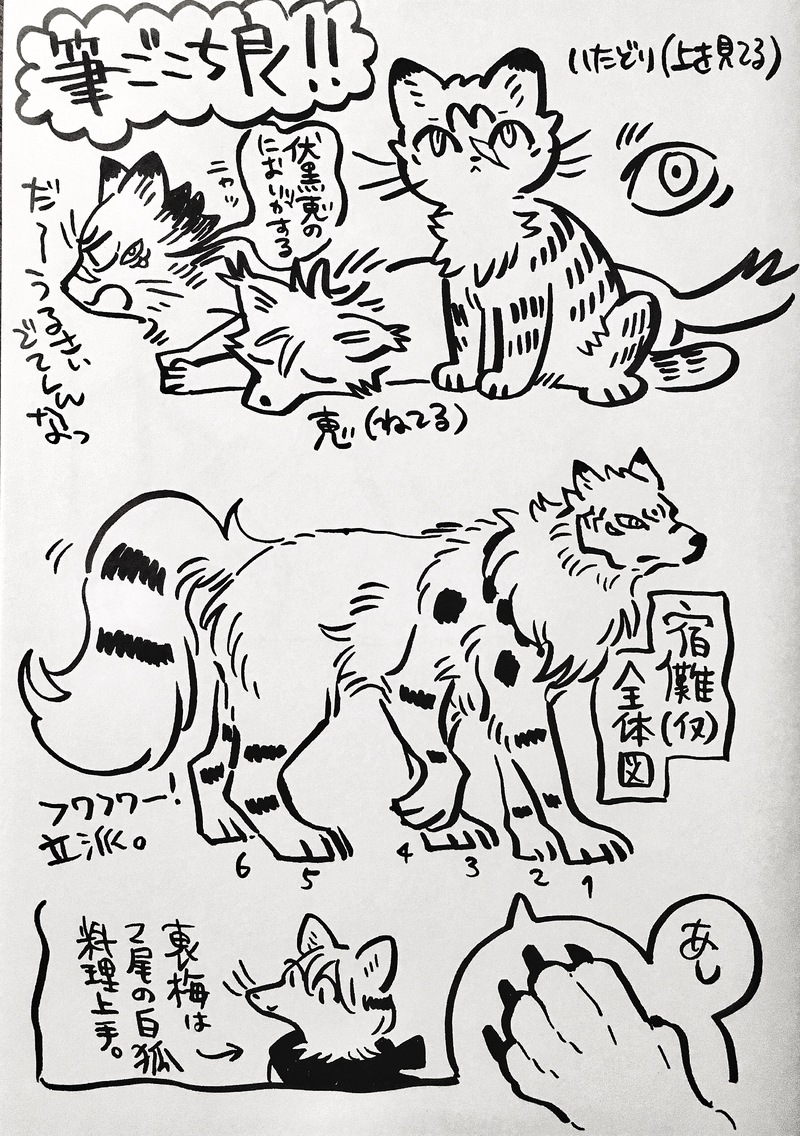 筆ごこち良く!!
いたどり(上を見てる)
伏黒恵の
においがする
ニャッ
だーうるさい
恵(ねてる)
宿儺(仮)
全体図
フワフワー!
立派。
6 5 4 3 2 1
裏梅は
2尾の白狐
料理上手。
あし